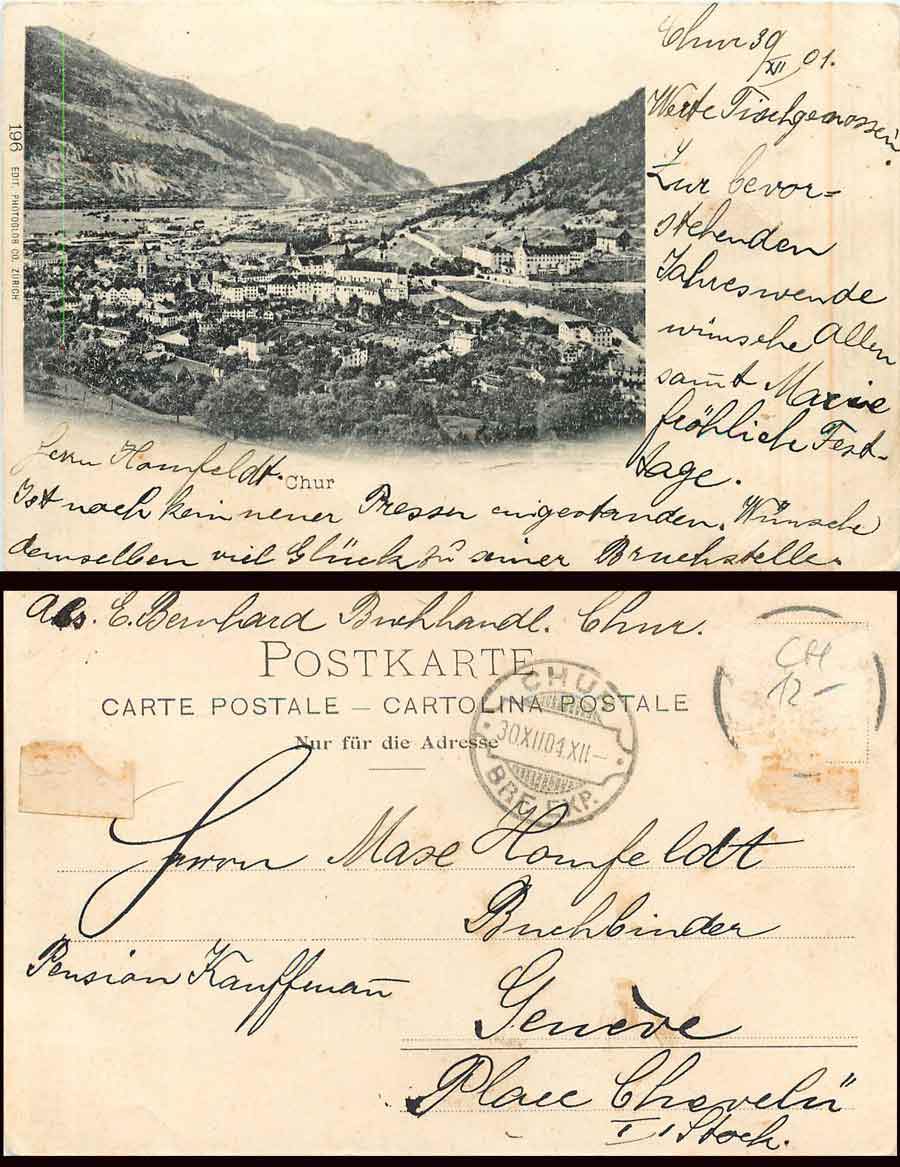 Chur 30/XII 01.
Werte Tischgenossen!
Zur bevor=
stehenden
Jahreswende
wünsche Allen
samt Marie
fröhlich Fest-
tage.
196 EDIT. PHOTOGLOB CO. ZÜRICH
Chur
Herrn Homfeldt.
Ist noch kein neuer Presser eingestanden. Wünsche
demselben viel Glück zu seiner Bruchstelle.
Abs. E. Bernhard Buchhandl. Chur.
POSTKARTE
CARTE POSTALE – CARTOLINA POSTALE
Nur für die Adresse
CHUR
30.XII.01.XII–
BRF. EXP.
CH
12–
Herrn Homfeldt
Buchbinder
Pension Kauffmann
Genève
Place
I Stock.